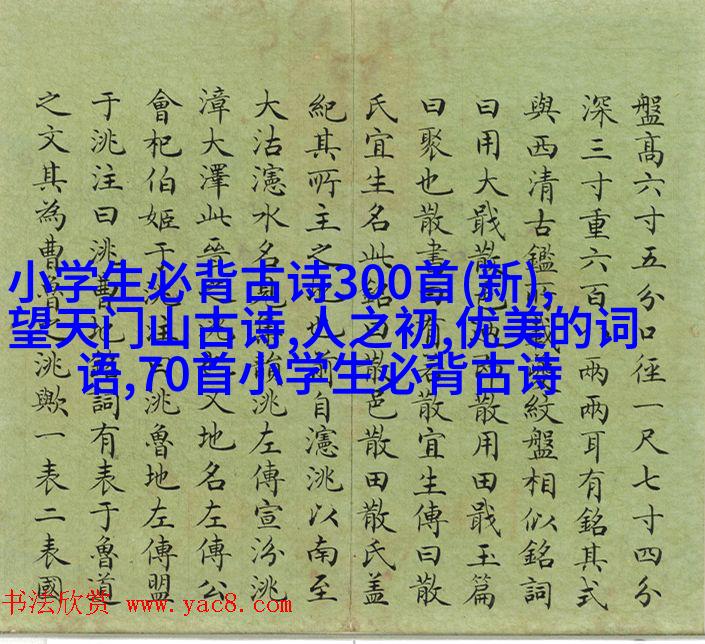 盤高六寸五分口徑一尺七寸四分
深三寸重六百兩兩耳有銘其式
與西清古鑑載紋盤相似銘詞
曰用大戩散散用田戩玉篇
曰聚也散書散宜生傳曰散
氏宜生名此銘散邑散田散氏蓋
紀其所主之地自瀗洮以南至
大沽瀗水名見洮左傳宣汾洮
漳大澤此晉又地名左傳公
會杞伯姬于洮魯地左傳盟
于洮注曰洮曹地詞有表于魯道
之文其為曹魯之洮歟一表二表國
小学生必背古诗300首(新),
望天门山古诗,人之初,优美的词
语,70首小学生必背古诗
书法欣赏 www.yac8.com